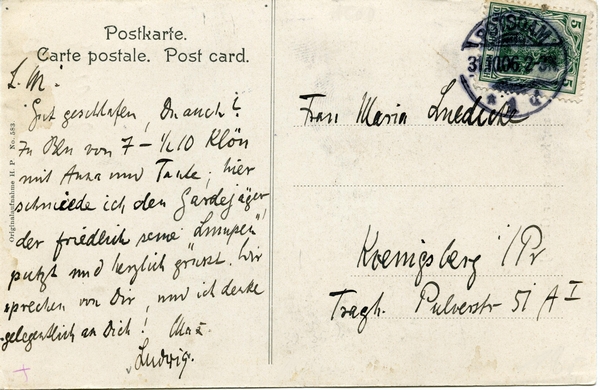 Postkarte.
Carte postale. Post card.
L. M!
Gut geschlafen, Du auch?
Zu Bln von 7 – ½10 Klön
mit Anna und Tante; hier
schmiede ich den Gardejäger
der friedlich seine "Lumpen"
putzt und herzlich grüsst. Wir
sprechen von Dir, und ich denke
gelegentlich an Dich!
Ludwig.
Originalaufnahme H. P. No. 583
POTSDAM
5
5
Frau Maria Luedicke
Koenigsberg i/Pr
Tragh. Pulverstr 51 A I